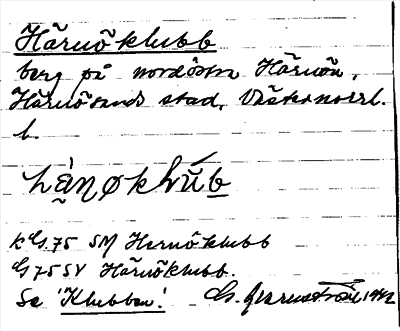 Härnöklubb
berg på nordöstra Härnön,
Härnösands stad, Västernorrl.
l.
KG.75 SM Hernöklubb
G 75 SV Härnöklubb.
Se 'Klubben'. 1942